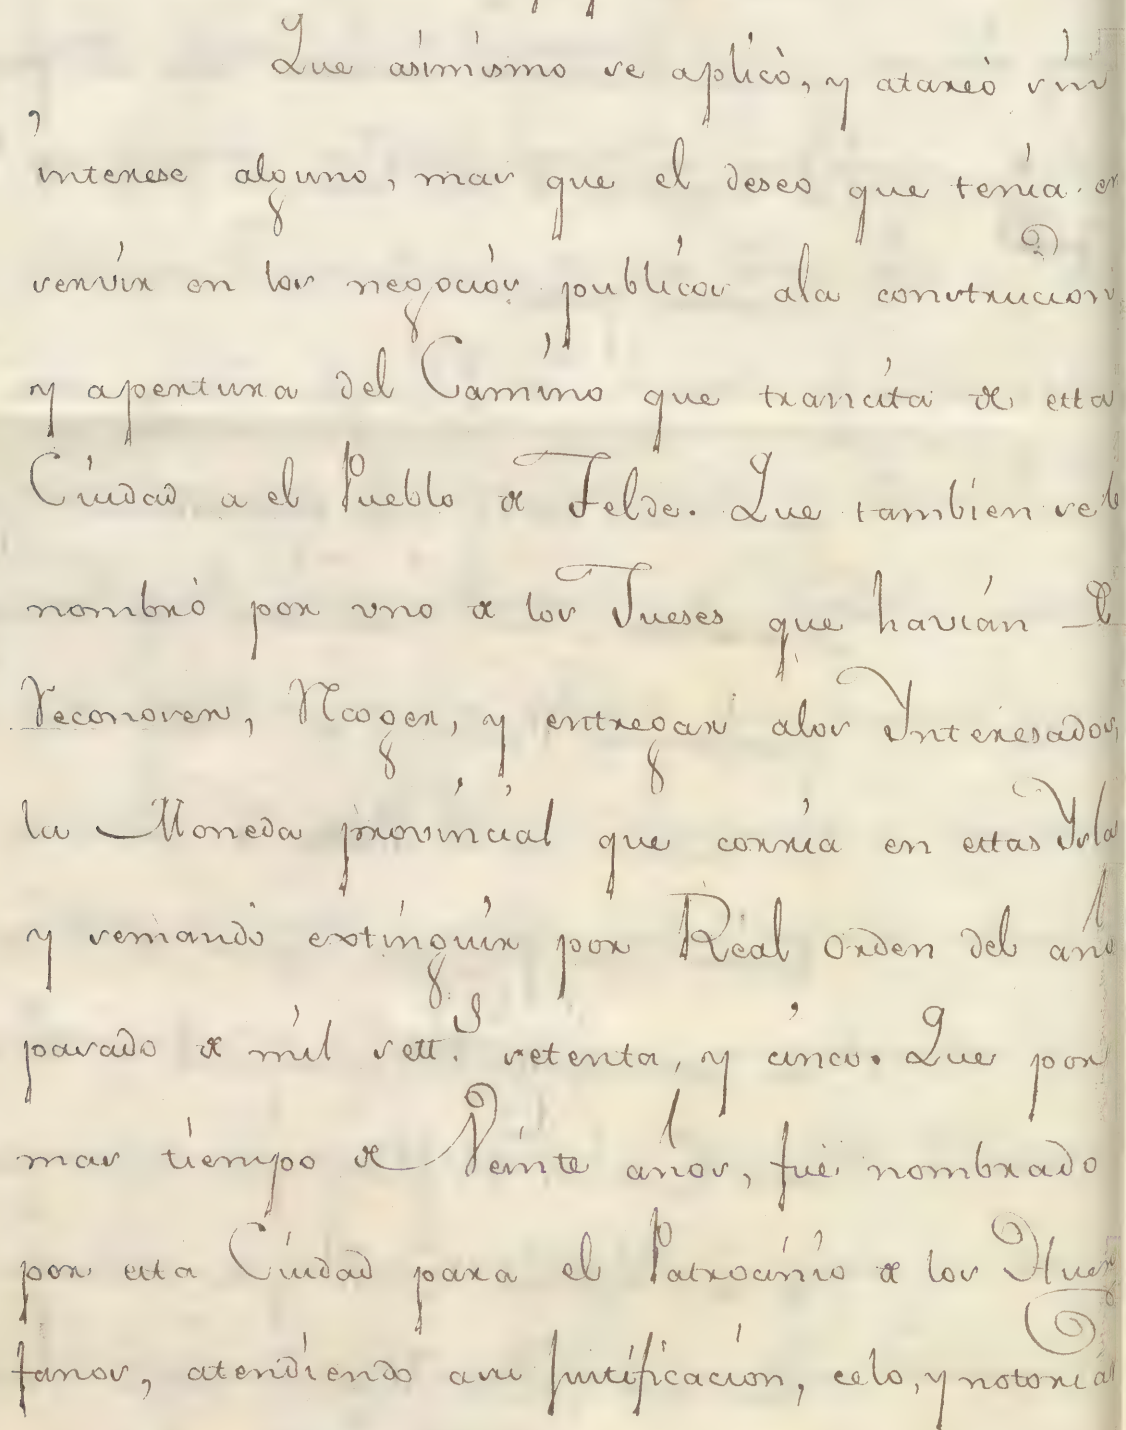 Que asimismo se aplicó, y atareó sin
interese alguno, mas que el deseo que tenía en
servir en los negocios publicos ala construcion
y apertura del Camino que trancita de esta
Ciudad a el Pueblo de Telde. Que tambien se le
nombró por uno de los Jueses que havían de
Reconoser, Recoger, y entregar alos Ynteresados,
la Moneda provincial que corría en estas Ysla
y semandó extinguir por Real orden del año
pasado de mil sett.s setenta, y cinco. Que por
mas tiempo de Veinte años, fué nombrado
por esta Ciudad para el Patrocinio de los Huer
fanos, atendiendo asu justificacion, celo, y notoria